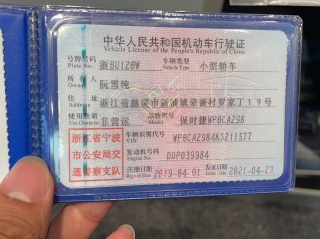 中华人民共和国机动车行驶证
Vehicle License of the People's Republic of China
号牌号码 浙BU1Z6W 车辆类型 小型轿车
Plate No. Vehicle Type
所有人 阮雪纯
Owner
住址 浙江省慈溪市新浦镇荣誉村罗家丁19号
Address
使用性质 非营运 品牌型号 保时捷WP0CA298
Use Character Model
浙江省宁波 车辆识别代号 WP0CA2984KS211577
VIN
市公安局交 发动机号码 DDP039984
Engine No.
通警察支队 注册日期 2019-04-01 发证日期 2021-04-29
Register Date Issue Date